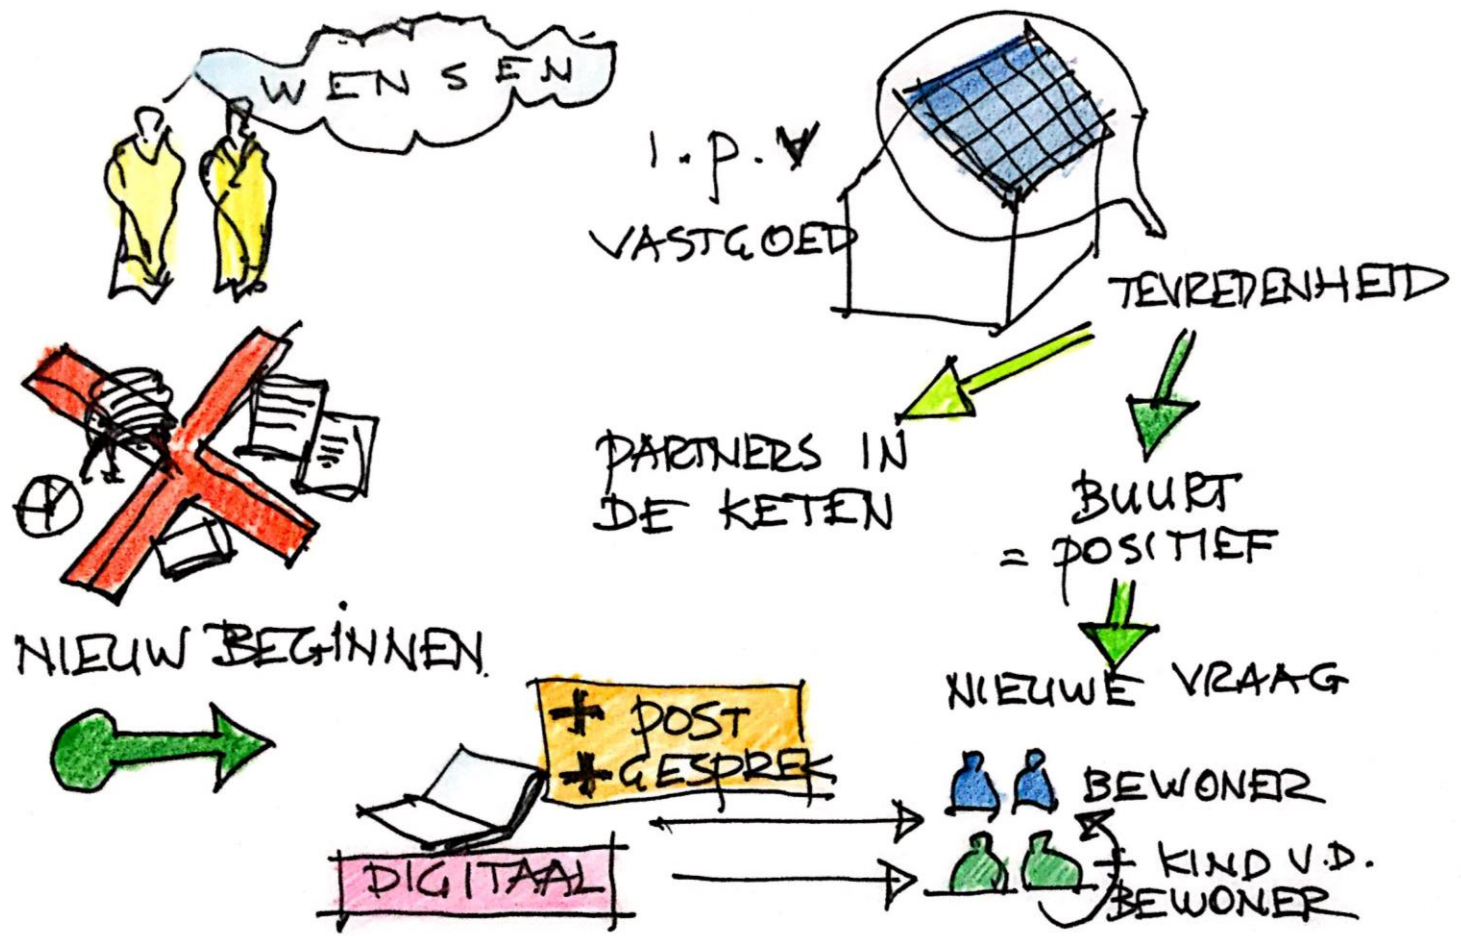 WENSEN
I.P.V
VASTGOED
TEVREDENHEID
PARTNERS IN
DE KETEN
BUURT
= POSITIEF
NIEUW BEGINNEN
NIEUWE VRAAG
+ POST
+ GESPREK
DIGITAAL
BEWONER
+ KIND V.D.
BEWONER